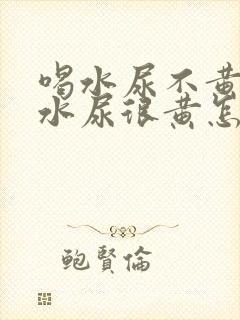 喝水尿不黄
水尿很黄怎
鲍賢倫